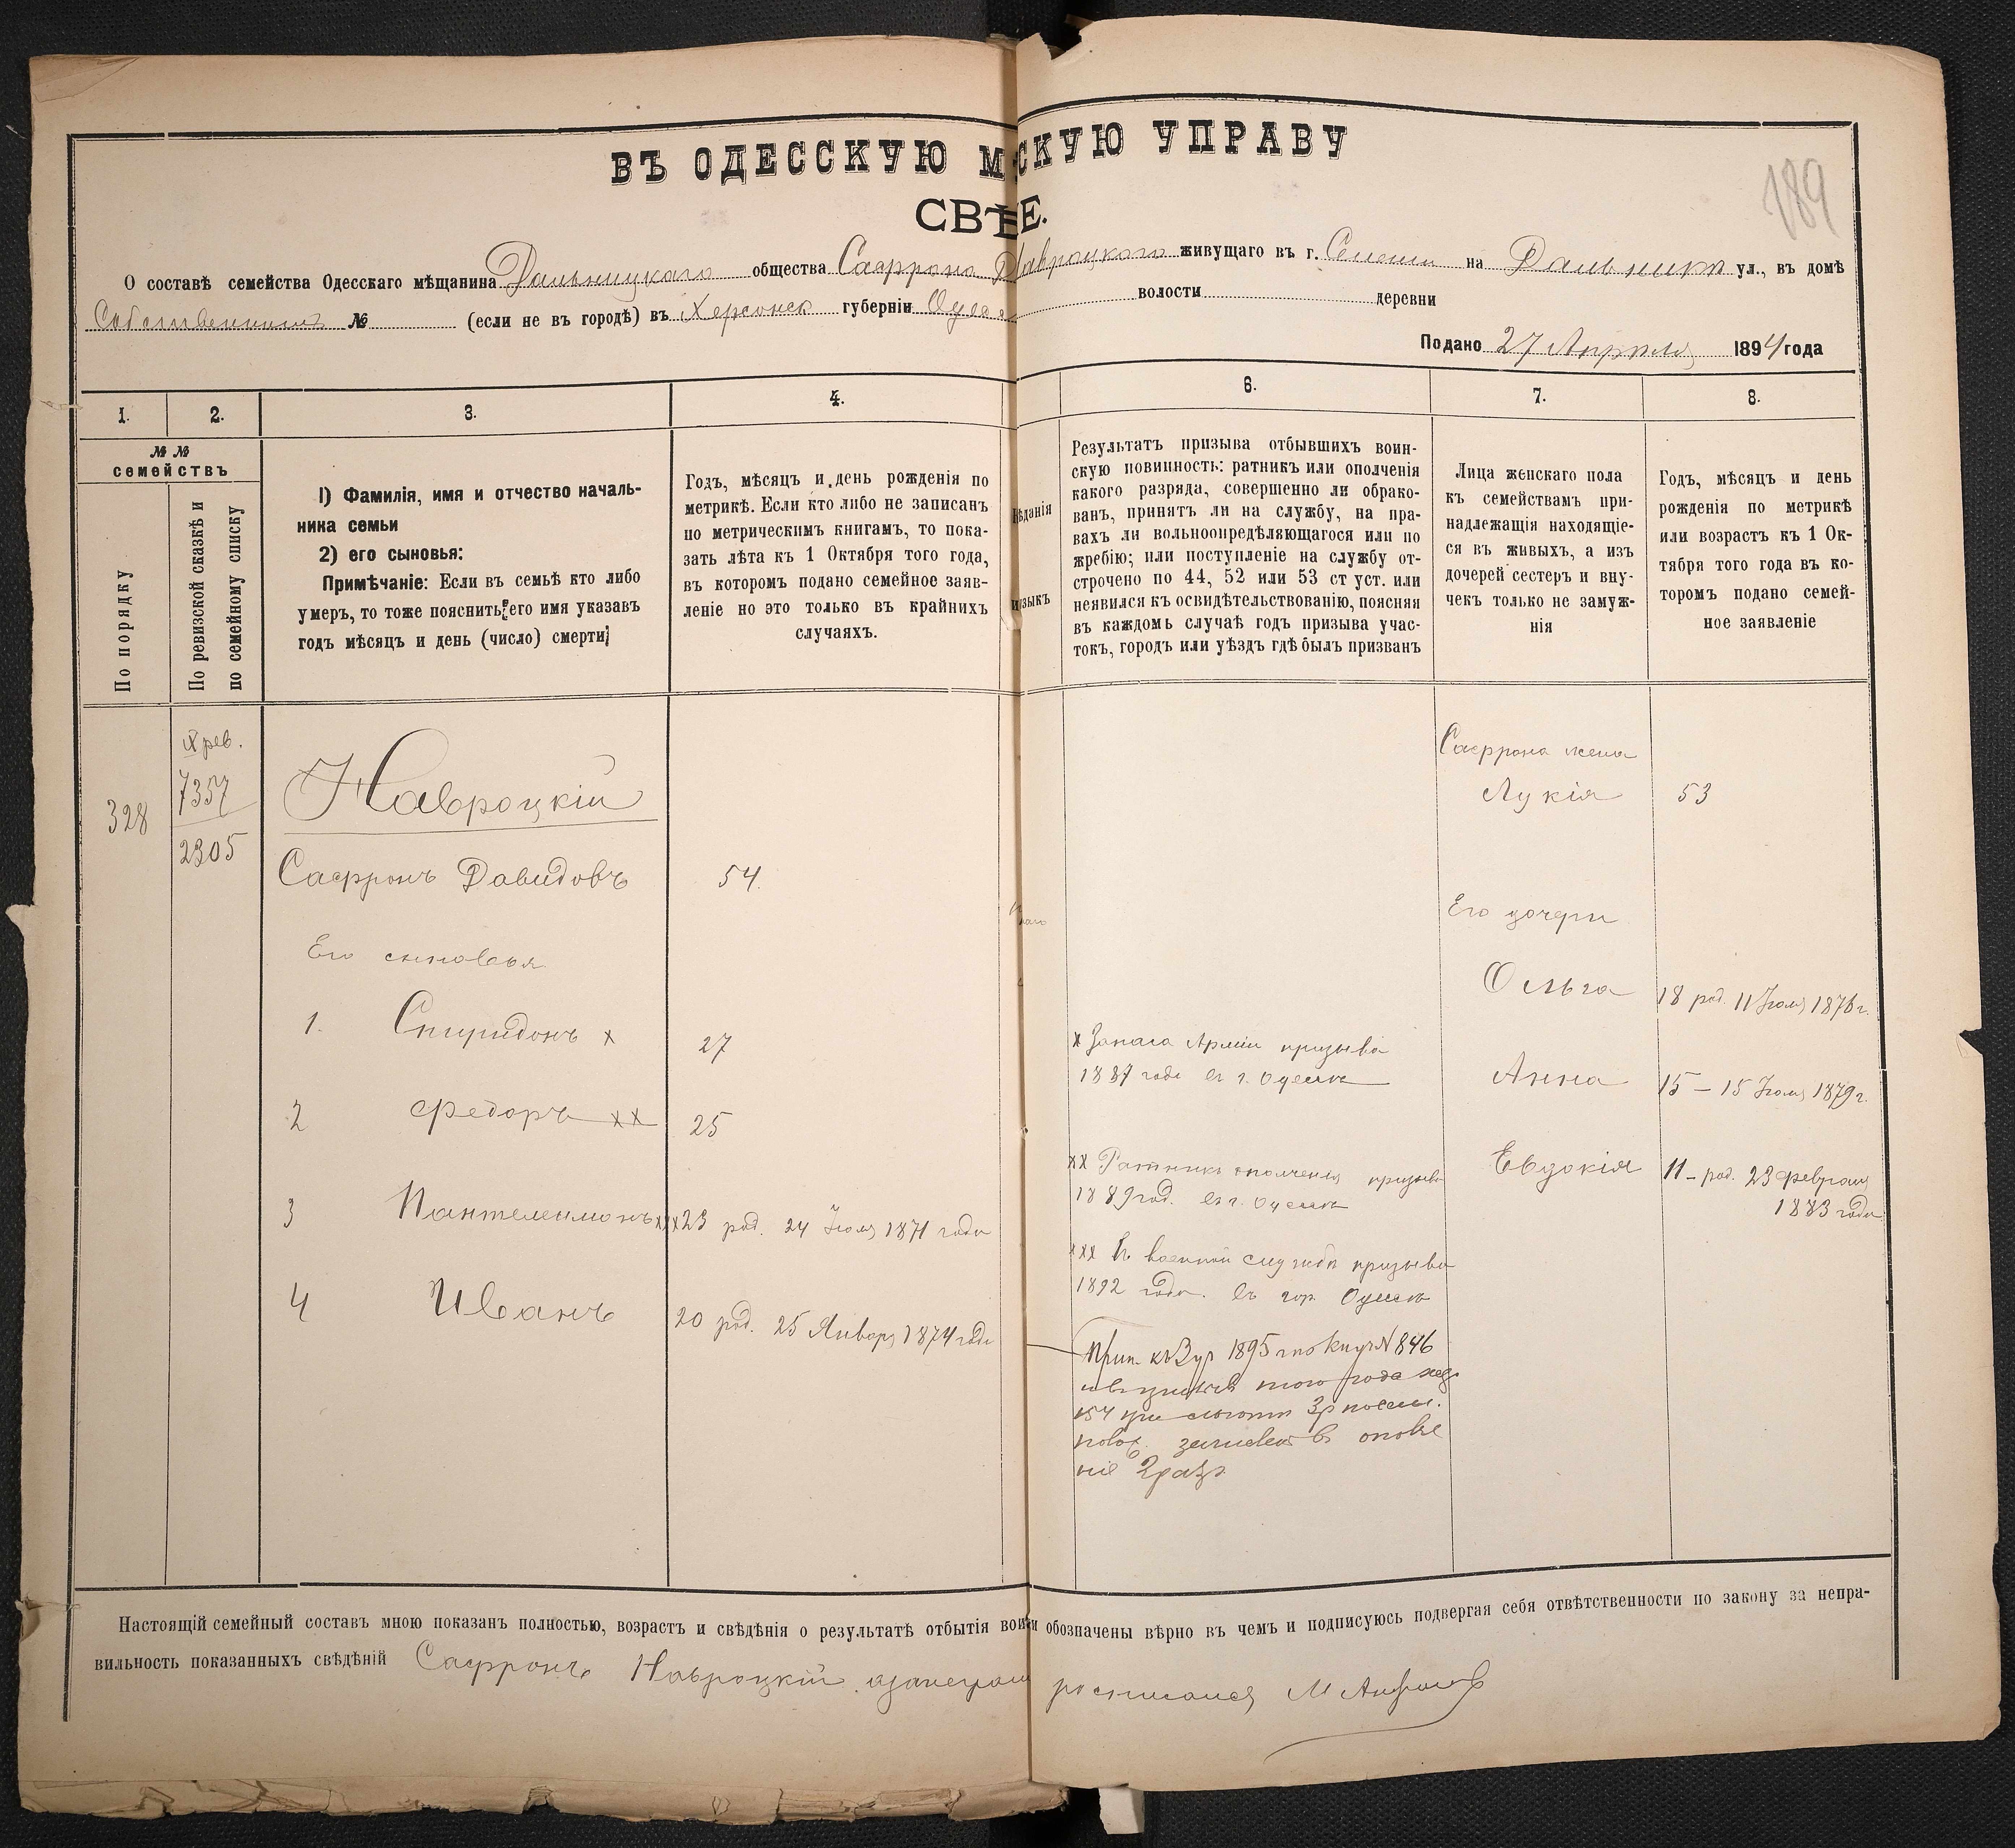 189
ВЪ ОДЕССКУЮ М СКУЮ УПРАВУ
СВѢ Е.
О составѣ семейства Одесскаго мѣщанина Дальницкаго общества Сафрона Навроцкаго живущаго въ г. на Дальникъ ул., въ домѣ
Собственномъ № (если не въ городѣ) въ Херсонск губерніи волости деревни
Подано 27 Апрѣля 1894 года
1. 2. 3. 4. 6. 7. 8.
№ №
семействъ
По порядку
По ревизской сказкѣ и
по семейному списку
1) Фамилія, имя и отчество началь-
ника семьи
2) его сыновья:
Примѣчаніе: Если въ семьѣ кто либо
умеръ, то тоже пояснить его имя указавъ
годъ мѣсяцъ и день (число) смерти
Годъ, мѣсяцъ и день рожденія по
метрикѣ. Если кто либо не записанъ
по метрическимъ книгамъ, то пока-
зать лѣта къ 1 Октября того года,
въ которомъ подано семейное заяв-
леніе но это только въ крайнихъ
случаяхъ.
ѣданія
языкъ
Результатъ призыва отбывшихъ воин-
скую повинность: ратникъ или ополченія
какого разряда, совершенно ли обрако-
ванъ, принятъ ли на службу, на пра-
вахъ ли вольноопредѣляющагося или по
жребію; или поступленіе на службу от-
срочено по 44, 52 или 53 ст уст. или
неявился къ освидѣтельствованію, поясняя
въ каждомъ случаѣ годъ призыва учас-
токъ, городъ или уѣздъ гдѣ былъ призванъ
Лица женскаго пола
къ семействамъ при-
надлежащія находящіе-
ся въ живыхъ, а изъ
дочерей сестеръ и вну-
чекъ только не замуж-
нія
Годъ, мѣсяцъ и день
рожденія по метрикѣ
или возрастъ къ 1 Ок-
тября того года въ ко-
торомъ подано семей-
ное заявленіе
328
X рев.
7357
2305
Навроцкій
Сафронъ Давидовъ 54.
Его сыновья
1. Спиридонъ x 27
2 Федоръ xx 25
3 Пантелеимонъ xxx 23 род. 24 Іюля 1871 года
4 Иванъ 20 род. 25 Января 1874 года
x Запаса Арміи призыва
1887 года въ г. Одессѣ
xx Ратникъ ополченія призыва
1889 год. въ г. Одессѣ
xxx Въ военной службѣ призыва
1892 года. въ гор. Одессѣ
Прип. къ 1895 по № 846
того года
154 при 3р
нiе 2 раз.
Сафрона жена
Лукія 53
Его дочери
Ольга 18 род. 11 Іюля 1876 г.
Анна 15 — 15 Іюля 1879 г.
Евдокія 11 — род. 23 февраля
1883 года
Настоящій семейный составъ мною показанъ полностью, возрастъ и свѣдѣнія о результатѣ отбытія вои обозначены вѣрно въ чемъ и подписуюсь подвергая себя отвѣтственности по закону за непра-
вильность показанныхъ свѣдѣній Сафронъ Навроцкій росписался